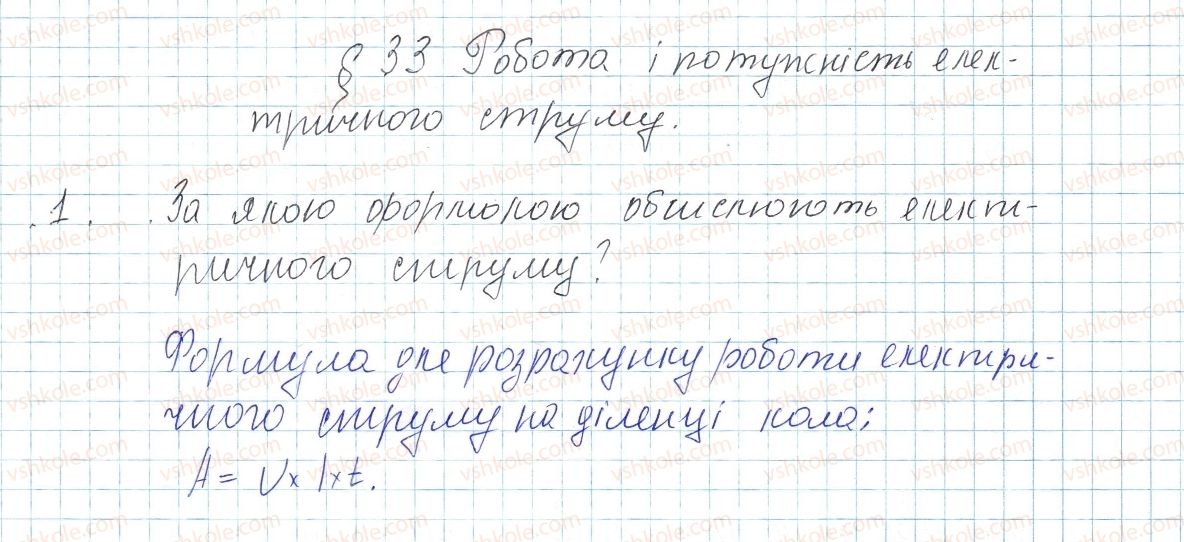 § 33 Робота і потужність елек-
тричного струму.
1. За якою формолою обчислюють елект-
ричного струму?
Формула для розрахунку роботи електри-
чного струму на діленці кола:
A = U x I x t.